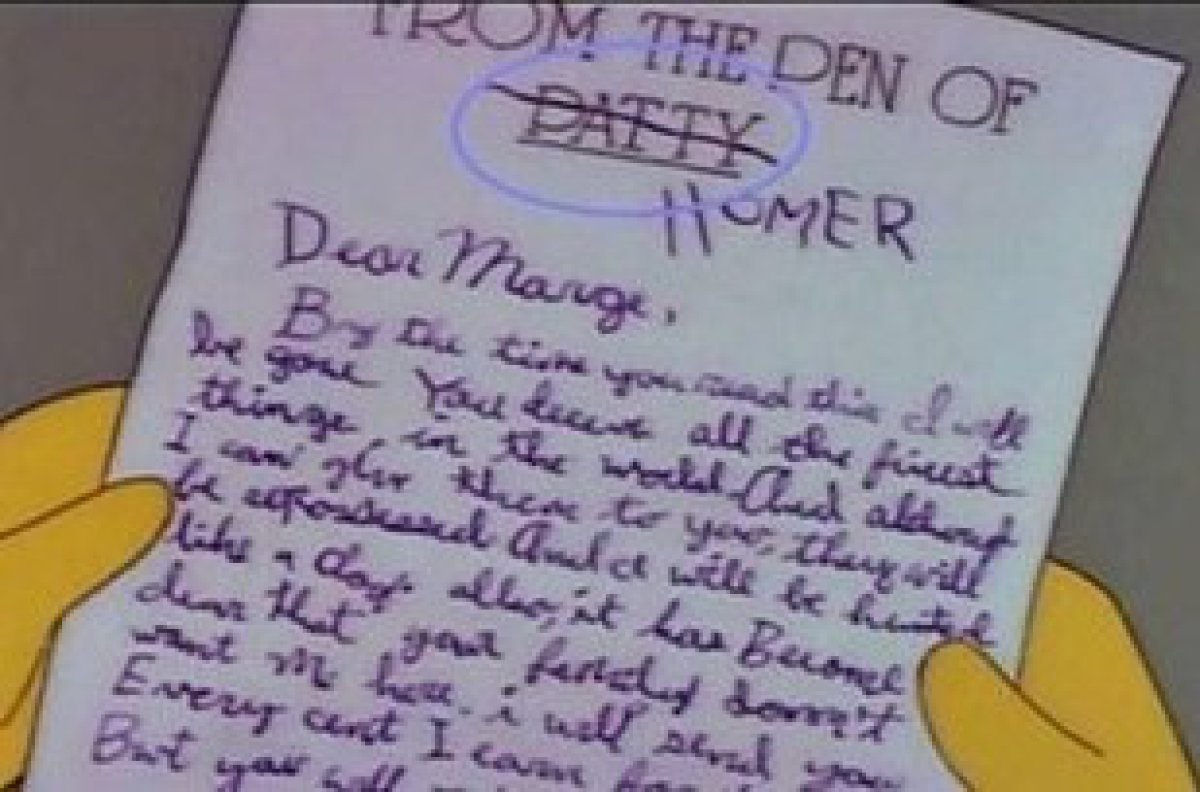 FROM THE DEN OF
PATTY
HOMER
Dear Marge,
By the time you read this I will
be gone You deserve all the finest
things in the world And although
I can give them to you, they will
be repossessed And I will be hunted
like a dog. also, it has Become
clear that your family doesn't
want Me here. i will send you
Every cent I earn for
But you will